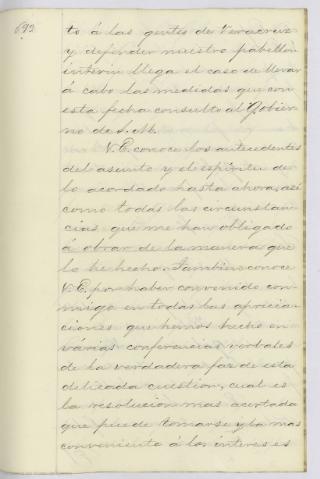 693
to á las gentes de Veracruz
y defender nuestro pabellon
interin llega el caso de llevar
á cabo las medidas que con
esta fecha consulto al Gobier
no de S. M.
V. E. conoce los antecedentes
del asunto y el espíritu de
lo acordado hasta ahora, así
como todas las circunstan
cias que me han obligado
á obrar de la manera que
lo he hecho. Tambien conoce
V. E. por haber convenido con
migo en todas las aprecia
ciones que hemos hecho en
várias conferencias verbales
de la verdadera faz de esta
delicada cuestion, cual es
la resolucion mas acertada
que puede tomarse y la mas
conveniente á los intereses